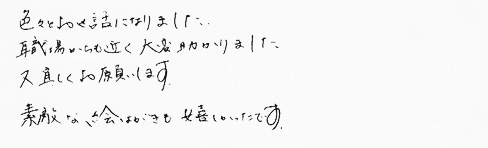 色々とお世話になりました。
職場からも近く大変助かりました。
又宜しくお願いします。
素敵な絵はがきも嬉しかったです。